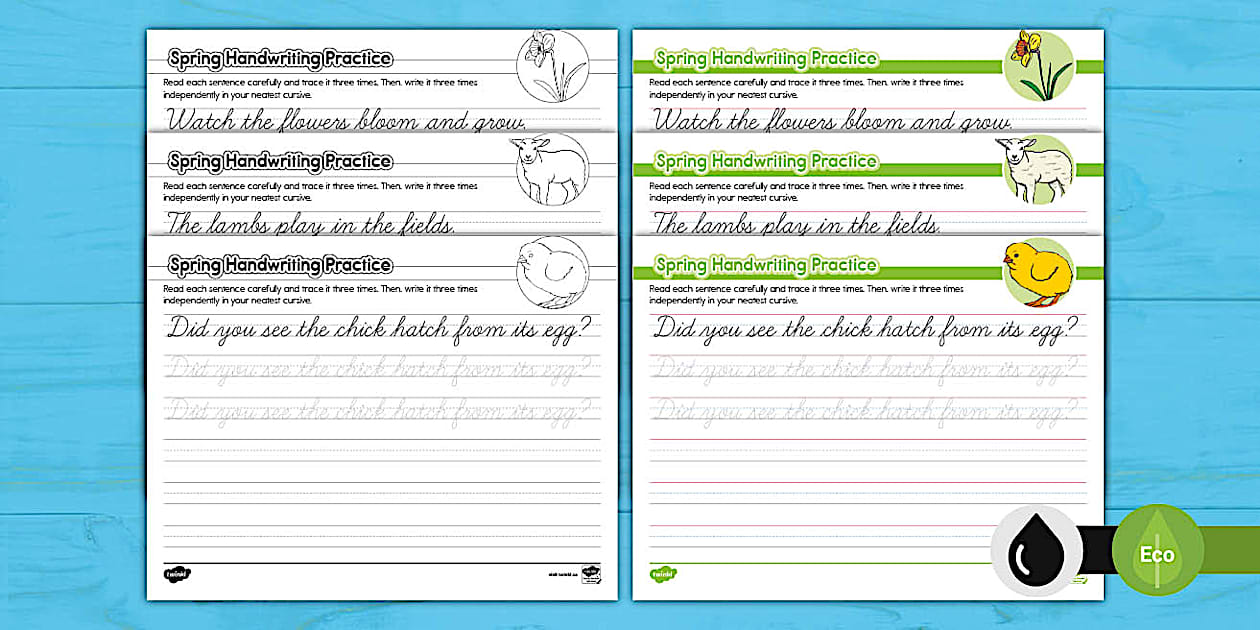 Spring Handwriting Practice
Read each sentence carefully and trace it three times. Then, write it three times
independently in your neatest cursive.
Watch the flowers bloom and grow.
Spring Handwriting Practice
Read each sentence carefully and trace it three times. Then, write it three times
independently in your neatest cursive.
The lambs play in the fields.
Spring Handwriting Practice
Read each sentence carefully and trace it three times. Then, write it three times
independently in your neatest cursive.
Did you see the chick hatch from its egg?
Did you see the chick hatch from its egg?
Did you see the chick hatch from its egg?
twinkl
Spring Handwriting Practice
Read each sentence carefully and trace it three times. Then, write it three times
independently in your neatest cursive.
Watch the flowers bloom and grow.
Spring Handwriting Practice
Read each sentence carefully and trace it three times. Then, write it three times
independently in your neatest cursive.
The lambs play in the fields.
Spring Handwriting Practice
Read each sentence carefully and trace it three times. Then, write it three times
independently in your neatest cursive.
Did you see the chick hatch from its egg?
Did you see the chick hatch from its egg?
Did you see the chick hatch from its egg?
twinkl
Eco